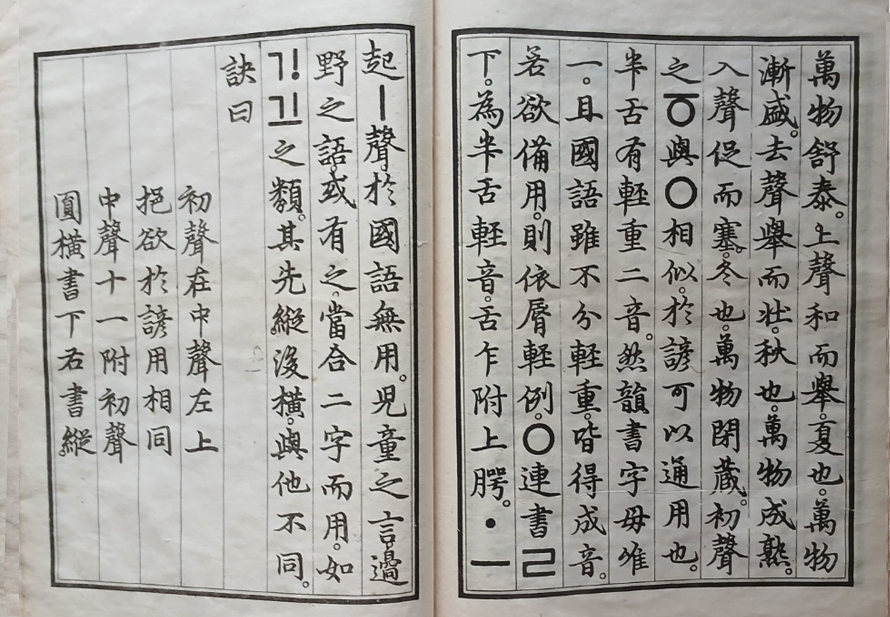 萬物舒泰。上聲和而舉。夏也。萬物
漸盛。去聲舉而壯。秋也。萬物成熟。
入聲促而塞。冬也。萬物閉藏。初聲
之ㆆ與ㅇ相似。於諺可以通用也。
半舌有輕重二音。然韻書字母唯
一。且國語雖不分輕重。皆得成音。
若欲備用。則依脣輕例。ㅇ連書ㄹ
下。為半舌輕音。舌乍附上腭。ㆍㅡ
起ㅣ聲。於國語無用。兒童之言。邊
野之語。或有之。當合二字而用。如
ᄀᆝᄀᆜ之類。其先縱後橫。與他不同。
訣曰
初聲在中聲左上
挹欲於諺用相同
中聲十一附初聲
圓橫書下右書縱